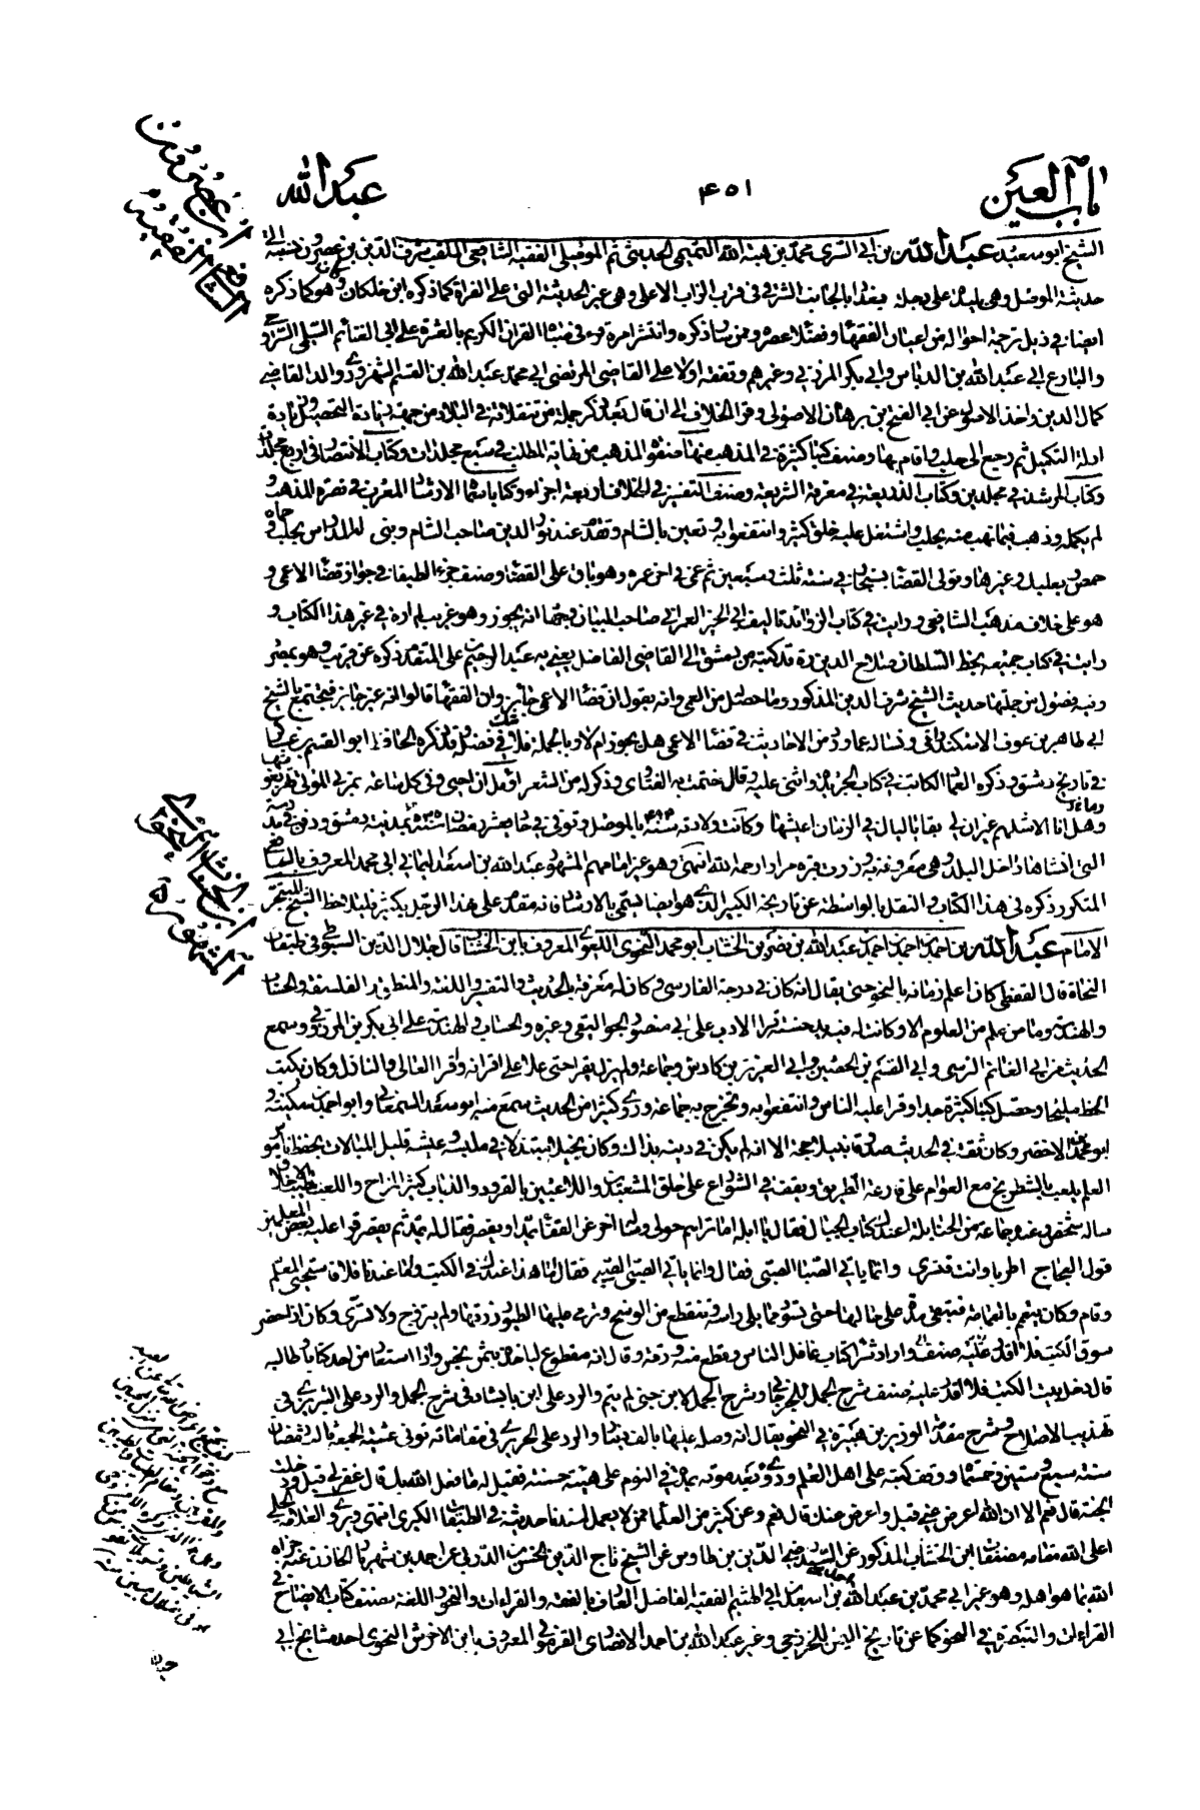 باب العين
٤٥١
عبد الله
ابن عصرون
الشافعي الفقيه
الشيخ ابو سعيد عبد الله بن ابي السري محمد بن هبة الله التميمي الحديثي ثم الموصلي الفقيه الشافعي الملقب شرف الدين بن عصرون نسبة الى
حديثة الموصل وهي بليدة على دجلة بالجانب الشرقي في قرب الزاب الاعلى وهي غير الحديثة التي على الفراة كما ذكره ابن خلكان وهو كما ذكره
ايضا في ذيل ترجمة احواله من اعيان الفقهاء وفضلاء عصره وممن سار ذكره وانتشر امره قرء في صباه القران الكريم بالعشرة على ابي الغنائم السلمي السروجي
والبارع ابي عبد الله بن الدباس وابي بكر المرزفي وغيرهم وتفقه اولا على القاضي المرتضى ابي محمد عبد الله بن القسم الشهرزوري والد القاضي
كمال الدين واخذ الاصول عن ابي الفتح بن برهان الاصولي وقرء الخلاف الى ان قال بعد ذكر جملة من تنقلاته في البلاد من جهة زيادة التحصيل وزيادة
التكميل ثم رجع الى حلب واقام بها وصنف كتبا كثيرة في المذهب منها صفوة المذهب من نهاية المطلب في سبع مجلدات وكتاب الانتصار في اربع مجلدات
وكتاب المرشد في مجلدين وكتاب الذريعة في معرفة الشريعة وصنف التفسير في الخلاف اربعة اجزاء وكتابا سماه الارشاد المغرب في نصرة المذهب و
لم يكمله وذهب فيما نهب منه بحلب واشتغل عليه خلق كثير وانتفعوا به وتعين بالشام وتقدم عند نور الدين صاحب الشام وبنى له المدارس بحلب وحماه
حمص وبعلبك وغيرها وتولى القضاء بسنجار في سنة ثلث وسبعين ثم عمي في اخر عمره وهو باق على القضاء وصنف جزء الطيفا في جواز قضاء الاعمى و
هو على خلاف مذهب الشافعي ورايت في كتاب الزوائد تاليف ابي الخير العمراني صاحب البيان وجها انه يجوز وهو غريب لم اره في غير هذا الكتاب و
رايت في كتاب جميعه بخط السلطان صلاح الدين ره قد كتبه من دمشق الى القاضي الفاضل يعني به عبد الرحيم بن علي المتقدم ذكره عن قريب وهو بمصر
وفيه فصول من جملتها حديث الشيخ شرف الدين المذكور وما حصل من العمى وانه يقول ان قضاء الاعمى جائز وان الفقهاء قالوا انه غير جايز فتجتمع بالشيخ
ابي طاهر بن عوف الاسكندراني وتساله عما ورد من الاحاديث في قضاء الاعمى هل يجوز ام لا وبالجملة فلا شك في فضله وقد ذكره الحافظ ابو القسم بن عساكر
في تاريخ دمشق وذكره العماد الكاتب في كتاب الخريدة واثنى عليه وقال ختمت به الفتاوى وذكر له من الشعر اؤمل ان احيى وفي كل ساعة تمر بي الموتى تهز نعوشها
وهل انا الا مثلهم غير ان لي بقايا ليال في الزمان اعيشها وكانت ولادته سنة ٤٩٢ بالموصل وتوفي في حاديعشر رمضان سنة ٥٨٥ بمدينة دمشق ودفن في مدرسته
التي انشاها داخل البلد وهي معروفة به وزرت قبره مرارا رحمه الله انتهى وهو غير امامهم المشهور عبد الله بن اسعد اليماني ابي محمد المعروف باليافعي
المتكرر ذكره في هذا الكتاب والنقل بالواسطة عن تاريخه الكبير الذي هو ايضا يسمى بالارشاد فانه مقدم على هذا الرجل بكثير فليلاحظ الشيخ المتبحر
ابن الخشاب النحوي
المشهور ره
الامام عبد الله بن احمد بن احمد بن احمد بن عبد الله بن نصر بن الخشاب ابو محمد النحوي اللغوي المعروف بابن الخشاب قال جلال الدين السيوطي في طبقات
النحاة قال القفطي كان اعلم زمانه بالنحو حتى يقال انه كان في درجة الفارسي وكان له معرفة بالحديث والتفسير واللغة والمنطق والفلسفة والحساب
والهندسة وما من علم من العلوم الا وكانت له فيه يد حسنة قرأ الادب على ابي منصور الجواليقي وغيره والحساب والهندسة على ابي بكر بن المرزوقي وسمع
الحديث من ابي الغنائم النرسي وابي القسم بن الحصين وابي العز بن كادش وجماعة ولم يزل يقرء حتى علا على اقرانه وقرأ العالي والنازل وكان يكتب
الخط مليحا وحصل كتبا كثيرة جدا وقرا عليه الناس وانتفعوا به وتخرج به جماعة وروى كثيرا من الحديث سمع منه ابو سعد السمعاني وابو احمد بن سكينة و
ابو محمد بن الاخضر وكان ثقة في الحديث صدوقا نبيلا حجة الا انه لم يكن في دينه بذاك وكان بخيلا مبتذلا في ملبسه وعيشه قليل المبالات بحفظ ناموس
العلم يلعب بالشطرنج مع العوام على قارعة الطريق ويقف في الشوارع على حلق المشعبذين واللاعبين بالقرود والدباب كثير المزاح واللعب طيب الاخلاق
ساله شخص وعنده جماعة من الحنابلة اعندك كتاب الجبال فقال يا ابله اما تراهم حولي وساله اخر عن القفا يمد او يقصر فقال له يمد ثم يقصر قرء عليه بعض المعلمين
قول العجاج اطربا وانت قنسري وانما ياتي الصبا الصبي فقال وانما ياتي الصبي الصبيه فقال له هذا عندك في الكتب واما عندنا فلا فاستحيى المعلم
وقام وكان يتعمم بالعمامة فتبقى مدة على حالها حتى يسود مما يلي راسه وتنقطع من الوسخ وترمي عليها الطيور زرقها ولم يتزوج ولا تسرى وكان اذا حضر
سوق الكتب واراد شراء كتاب غافل الناس وقطع منه ورقة وقال انه مقطوع لياخذه بثمن بخس واذا استعار من احد كتابا وطالبه
قال دخل بين الكتب فلا اقدر عليه صنف شرح الجمل للجرجاني وشرح اللمع لابن جني لم يتم والرد على ابن بابشاذ في شرح الجمل والرد على التبريزي في
تهذيب الاصلاح وشرح مقدمة الوزير بن هبيرة في النحو يقال انه وصل عليها بالف دينار والرد على الحريري في مقاماته توفي عشية الجمعة ثالث رمضان
سنة سبع وستين وخمسماة ووقف كتبه على اهل العلم ورؤي بعد موته بمدة في النوم على هيئة حسنة فقيل له ما فعل الله بك قال غفر لي قيل ودخلت
الجنة قال نعم الا ان الله اعرض عني قيل واعرض عنك قال نعم وعن كثير من العلماء ممن لا يعمل اسندنا حديثه في الطبقات الكبرى انتهى ويروي العلامة الحلي
اعلى الله مقامه مصنفات ابن الخشاب المذكور عن السيد رضي الدين بن طاوس عن الشيخ تاج الدين الحسن بن الدربي عن احمد بن شهريار الخازن عنه جزاه
الله بما هو اهله وهو غير ابي محمد بن عبد الله بن اسعد بن ابي الهيثم الفقيه الفاضل العارف بالفقه والقراءات والنحو واللغة مصنف كتاب الايضاح في
القراءات والتبصرة في النحو كما عن تاريخ اليمن للخزرجي وغير عبد الله بن احمد الانصاري القرموني المعروف بابن الاخرش النحوي احد مشايخ ابي